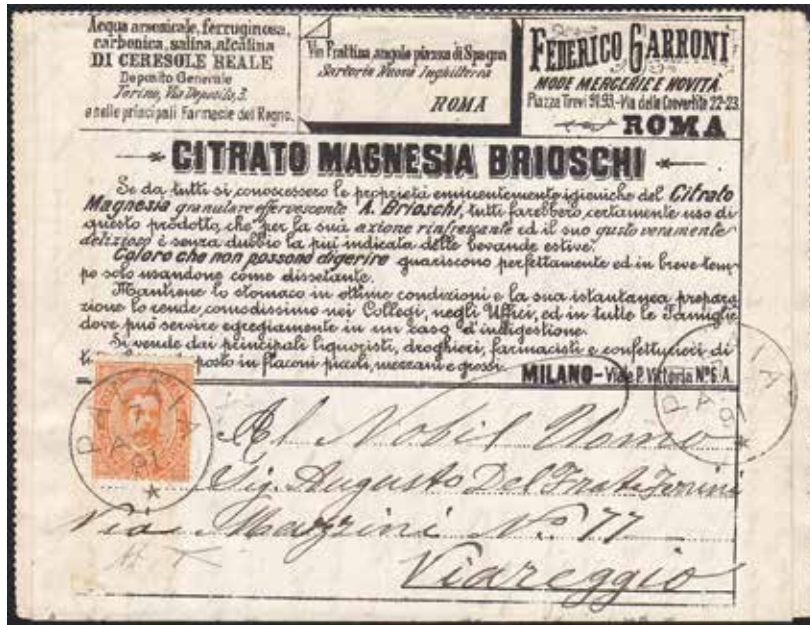 Acqua arsenicale, ferruginosa,
carbonica, salina, alcalina
DI CERESOLE REALE
Deposito Generale
Torino, Via Deposito, 3.
e nelle principali Farmacie del Regno.
Via Frattina, angolo piazza di Spagna
Sartoria Nuova Inghilterra
ROMA
FEDERICO GARRONI
MODE MERCERIE E NOVITÀ
Piazza Trevi 91.93.-Via delle Convertite 22-23.
ROMA
CITRATO MAGNESIA BRIOSCHI
Se da tutti si conoscessero le proprietà eminentemente igieniche del Citrato
Magnesia granulare effervescente A. Brioschi, tutti farebbero certamente uso di
questo prodotto, che per la sua azione rinfrescante ed il suo gusto veramente
delizioso è senza dubbio la più indicata delle bevande estive.
Coloro che non possono digerire guariscono perfettamente ed in breve tem-
po solo usandone come dissetante.
Mantiene lo stomaco in ottime condizioni e la sua istantanea prepara
zione lo rende comodissimo nei Collegi, negli Uffici, ed in tutte le Famiglie
dove può servire egregiamente in un caso d'indigestione.
Si vende dai principali liquoristi, droghieri, farmacisti e confetturieri di
posto in flaconi piccoli, mezzani e grossi.
MILANO - Viale P. Vittoria N° 6 A.
Al Nobil Uomo
Sig. Augusto Del Frate
Via Mazzini N.° 77
Viareggio